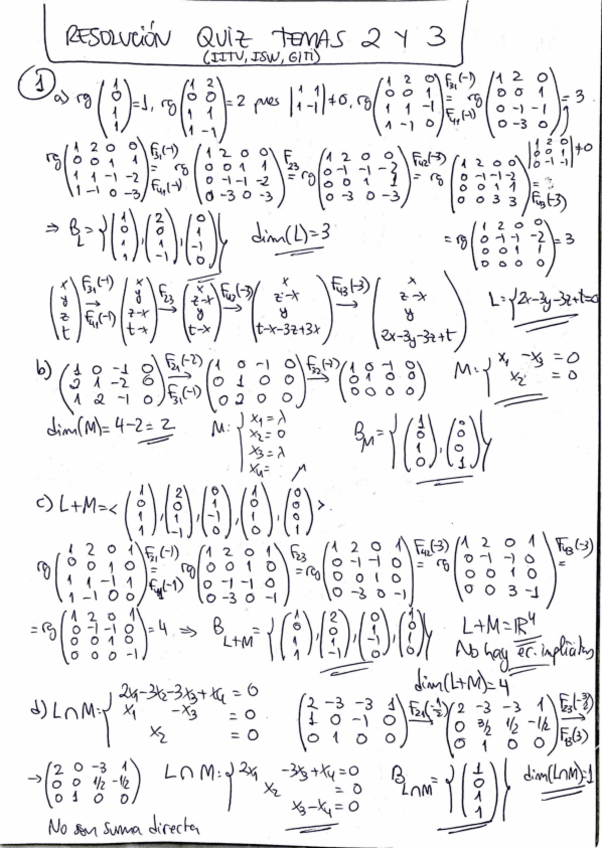 RESOLUCIÓN QUIZ TEMAS 2 Y 3
(IITV, ISW, GITI)
1
a) rg (1 0 1 1) = 1, rg (1 2; 0 0; 1 1; 1 -1) = 2 pues |1 1; 1 -1| ≠ 0, rg (1 2 0; 0 0 1; 1 1 -1; 1 -1 0) F31(-1) = F41(-1) rg (1 2 0; 0 0 1; 0 -1 -1; 0 -3 0) = 3
rg (1 2 0 0; 0 0 1 1; 1 1 -1 -2; 1 -1 0 -3) F31(-1) = F41(-1) rg (1 2 0 0; 0 0 1 1; 0 -1 -1 -2; 0 -3 0 -3) F23 = rg (1 2 0 0; 0 -1 -1 -2; 0 0 1 1; 0 -3 0 -3) F42(-3) = rg (1 2 0 0; 0 -1 -1 -2; 0 0 1 1; 0 0 3 3) = F43(-3) |1 2 0; 0 0 1; 0 -1 -1| ≠ 0
⇒ B_L = {(1 0 1 1), (2 0 1 -1), (0 1 -1 0)} dim(L) = 3 = rg (1 2 0 0; 0 -1 -1 -2; 0 0 1 1; 0 0 0 0) = 3
(x y z t) F31(-1) → F41(-1) (x y z-x t-x) F23 → (x z-x y t-x) F42(-3) → (x z-x y t-x-3z+3x) F43(-3) → (x z-x y 2x-3y-3z+t) L = {2x-3y-3z+t=0
b) (1 0 -1 0; 2 1 -2 0; 1 2 -1 0) F21(-2) → F31(-1) (1 0 -1 0; 0 1 0 0; 0 2 0 0) F32(-2) → (1 0 -1 0; 0 1 0 0; 0 0 0 0) M: { x1 - x3 = 0
x2 = 0
dim(M) = 4-2 = 2 M: { x1 = λ
x2 = 0
x3 = λ
x4 = μ
B_M = {(1 0 1 0), (0 0 0 1)}
c) L+M = < (1 0 1 1), (2 0 1 -1), (0 1 -1 0), (1 0 1 0), (0 0 0 1) >
rg (1 2 0 1; 0 0 1 0; 1 1 -1 1; 1 -1 0 0) F31(-1) = F41(-1) rg (1 2 0 1; 0 0 1 0; 0 -1 -1 0; 0 -3 0 -1) F23 = rg (1 2 0 1; 0 -1 -1 0; 0 0 1 0; 0 -3 0 -1) F42(-3) = rg (1 2 0 1; 0 -1 -1 0; 0 0 1 0; 0 0 3 -1) F43(-3) =
= rg (1 2 0 1; 0 -1 -1 0; 0 0 1 0; 0 0 0 -1) = 4 ⇒ B_L+M = {(1 0 1 1), (2 0 1 -1), (0 1 -1 0), (1 0 1 0)} L+M = ℝ⁴
No hay ec. implícitas
dim(L+M) = 4
d) L∩M: { 2x1-3x2-3x3+x4 = 0
x1 - x3 = 0
x2 = 0
(2 -3 -3 1; 1 0 -1 0; 0 1 0 0) F21(-1/2) → (2 -3 -3 1; 0 3/2 1/2 -1/2; 0 1 0 0) F23(-3/2) → F13(3)
→ (2 0 -3 1; 0 0 1/2 -1/2; 0 1 0 0) L∩M: { 2x1 -3x3+x4 = 0
x2 = 0
x3-x4 = 0
B_L∩M = {(1 0 1 1)} dim(L∩M) = 1
No son suma directa